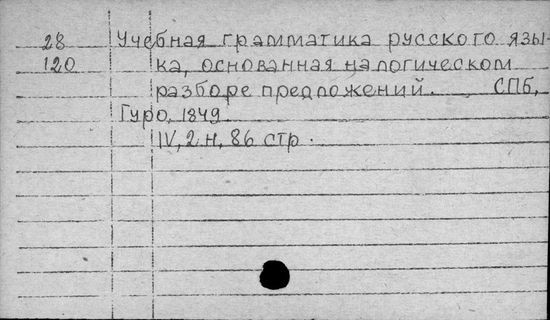 28 Учебная грамматика русского язы-
120 ка, основанная на логическом
разборе предложений. СПб,
Гуро, 1849
IV, 2 н, 86 стр.